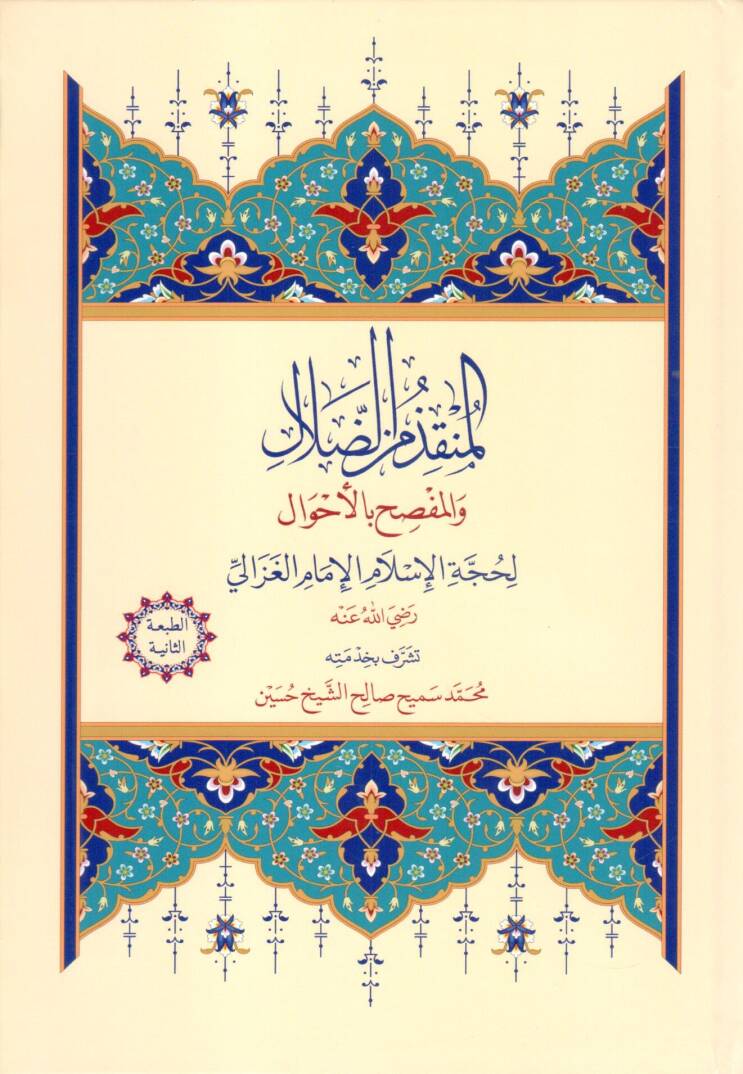 المُنْقِذُ مِنَ الضَّلَالِ
وَالمُفْصِحُ بِالأَحْوَالِ
لِحُجَّةِ الإِسْلَامِ الإِمَامِ الغَزَالِيِّ
رَضِيَ اللهُ عَنْه
تشرَّف بخِدْمَتِه
مُحَمَّد سَمِيح صَالِح الشَّيْخ حُسَيْن
الطبعة
الثانية